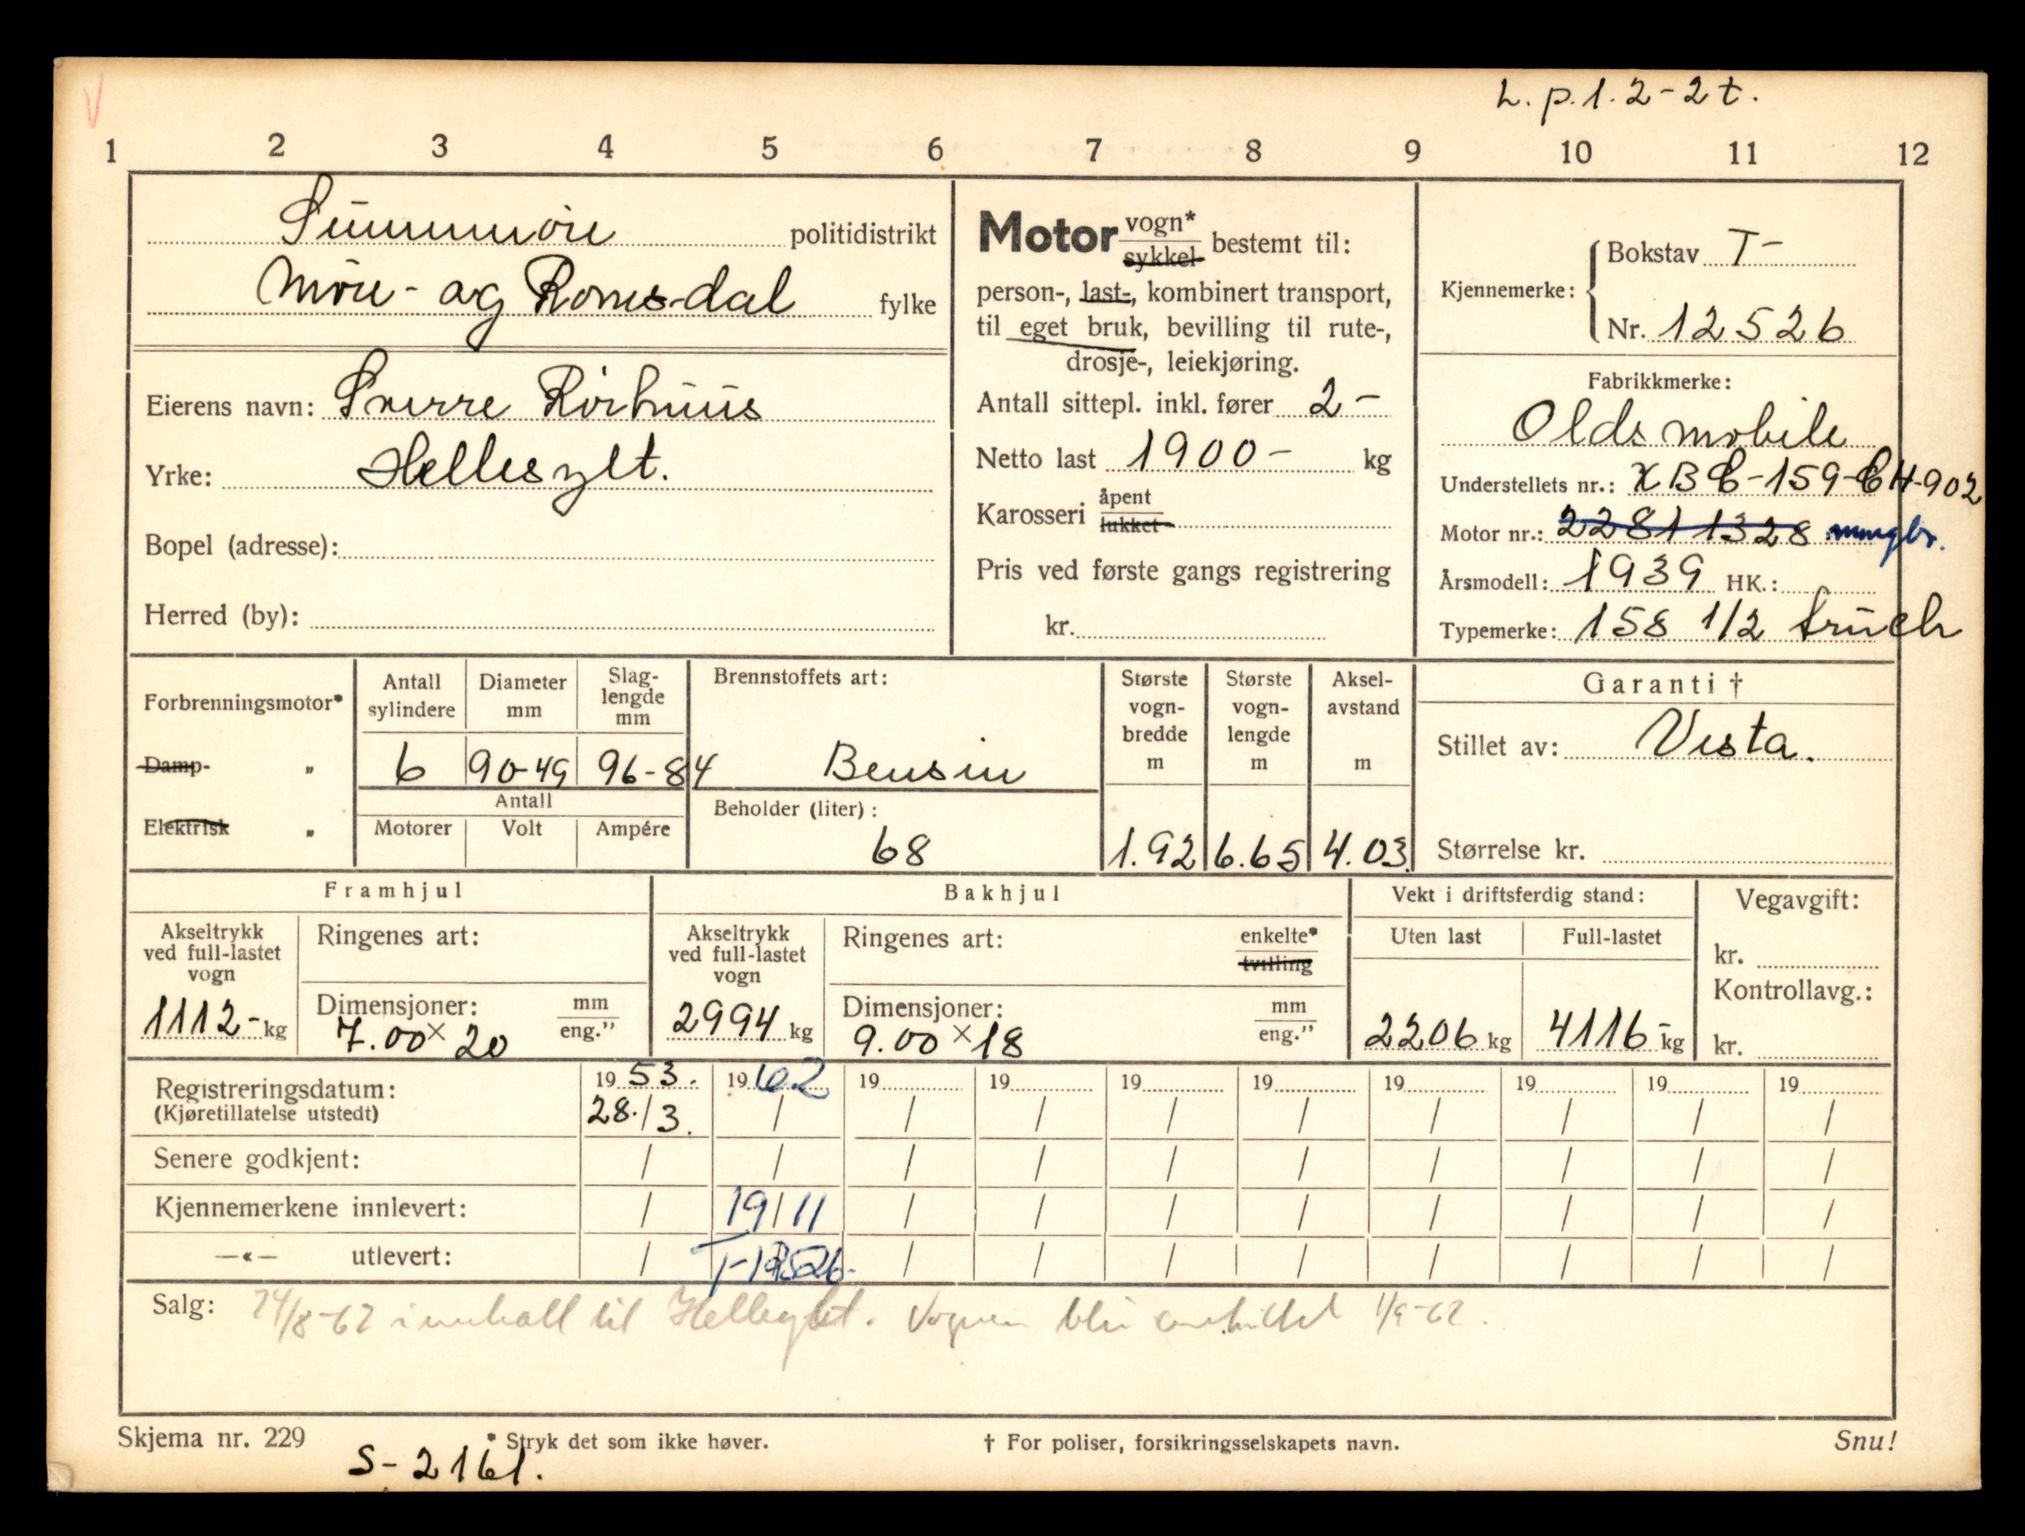 V
L.p.1.2-2t.
1 2 3 4 5 6 7 8 9 10 11 12
Sunnmøre politidistrikt
Møre- og Romsdal fylke
Eierens navn: Sverre Rørhuus
Yrke: Hellesylt.
Bopel (adresse):
Herred (by):
Motor vogn* sykkel bestemt til:
person-, last-, kombinert transport,
til eget bruk, bevilling til rute-,
drosje-, leiekjøring.
Antall sittepl. inkl. fører 2-
Netto last 1900- kg
Karosseri åpent lukket
Pris ved første gangs registrering
kr.
Kjennemerke: Bokstav T-
Nr. 12526
Fabrikkmerke:
Oldsmobile
Understellets nr.: XBC-159-CH-902
Motor nr.: 22811328
Årsmodell: 1939 HK.:
Typemerke: 158 1/2 truck
Forbrenningsmotor*
Damp- „
Elektrisk „
Antall sylindere
Diameter mm
Slaglengde mm
6 90-49 96-84
Antall
Motorer Volt Ampére
Brennstoffets art:
Bensin
Beholder (liter):
68
Største vognbredde m
1.92
Største vognlengde m
6.65
Akselavstand m
4.03
Garanti †
Stillet av: Vesta.
Størrelse kr.
Framhjul
Akseltrykk ved full-lastet vogn
1112- kg
Ringenes art:
Dimensjoner: mm eng."
7.00 x 20
Bakhjul
Akseltrykk ved full-lastet vogn
2994 kg
Ringenes art: enkelte* tvilling
Dimensjoner: mm eng."
9.00 x 18
Vekt i driftsferdig stand:
Uten last Full-lastet
2206 kg 4116- kg
Vegavgift:
kr.
Kontrollavg.:
kr.
Registreringsdatum: 1953. 1962 19 19 19 19 19 19 19 19
(Kjøretillatelse utstedt) 28./3. / / / / / / / / /
Senere godkjent: / / / / / / / / / /
Kjennemerkene innlevert: / 19/11 / / / / / / / /
—«— utlevert: / T-12526- / / / / / / / /
Salg: 24/8-62 innkall til Hellesylt. Vognen blir 1/9-62.
Skjema nr. 229
* Stryk det som ikke høver.
† For poliser, forsikringsselskapets navn.
Snu!
S-2161.